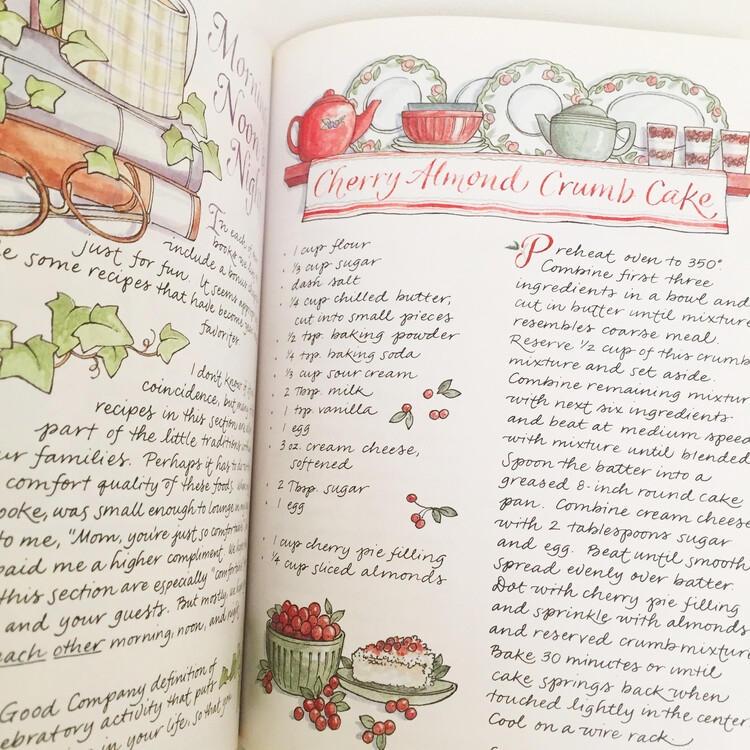 Morning
Noon &
Night
In each of our
books we have
include a bonus
just for fun. It seems
some recipes that have become
favorites
I don't know if
coincidence, but many
recipes in this section are
part of the little traditions
our families. Perhaps it has to do
comfort quality of these foods. When
was small enough to lounge in my
to me, "Mom, you're just so comfortable
paid me a higher compliment. We hope
this section are especially "comfortable"
and your guests. But mostly, we hope
each other morning, noon, and night
Good Company definition of
celebratory activity that puts
in your life, so that you
Cherry Almond Crumb Cake
· 1 cup flour
· 1/3 cup sugar
· dash salt
· 1/4 cup chilled butter,
cut into small pieces
· 1/2 tsp. baking powder
· 1/4 tsp. baking soda
· 1/3 cup sour cream
· 2 Tbsp. milk
· 1 tsp vanilla
· 1 egg
· 3 oz. cream cheese,
softened
· 2 Tbsp. sugar
· 1 egg
· 1 cup cherry pie filling
· 1/4 cup sliced almonds
Preheat oven to 350°.
Combine first three
ingredients in a bowl and
cut in butter until mixture
resembles coarse meal.
Reserve 1/2 cup of this crumb
mixture and set aside.
Combine remaining mixture
with next six ingredients
and beat at medium speed
with mixture until blended.
Spoon the batter into a
greased 8-inch round cake
pan. Combine cream cheese
with 2 tablespoons sugar
and egg. Beat until smooth
Spread evenly over batter.
Dot with cherry pie filling
and sprinkle with almonds
and reserved crumb mixture
Bake 30 minutes or until
cake springs back when
touched lightly in the center
Cool on a wire rack.